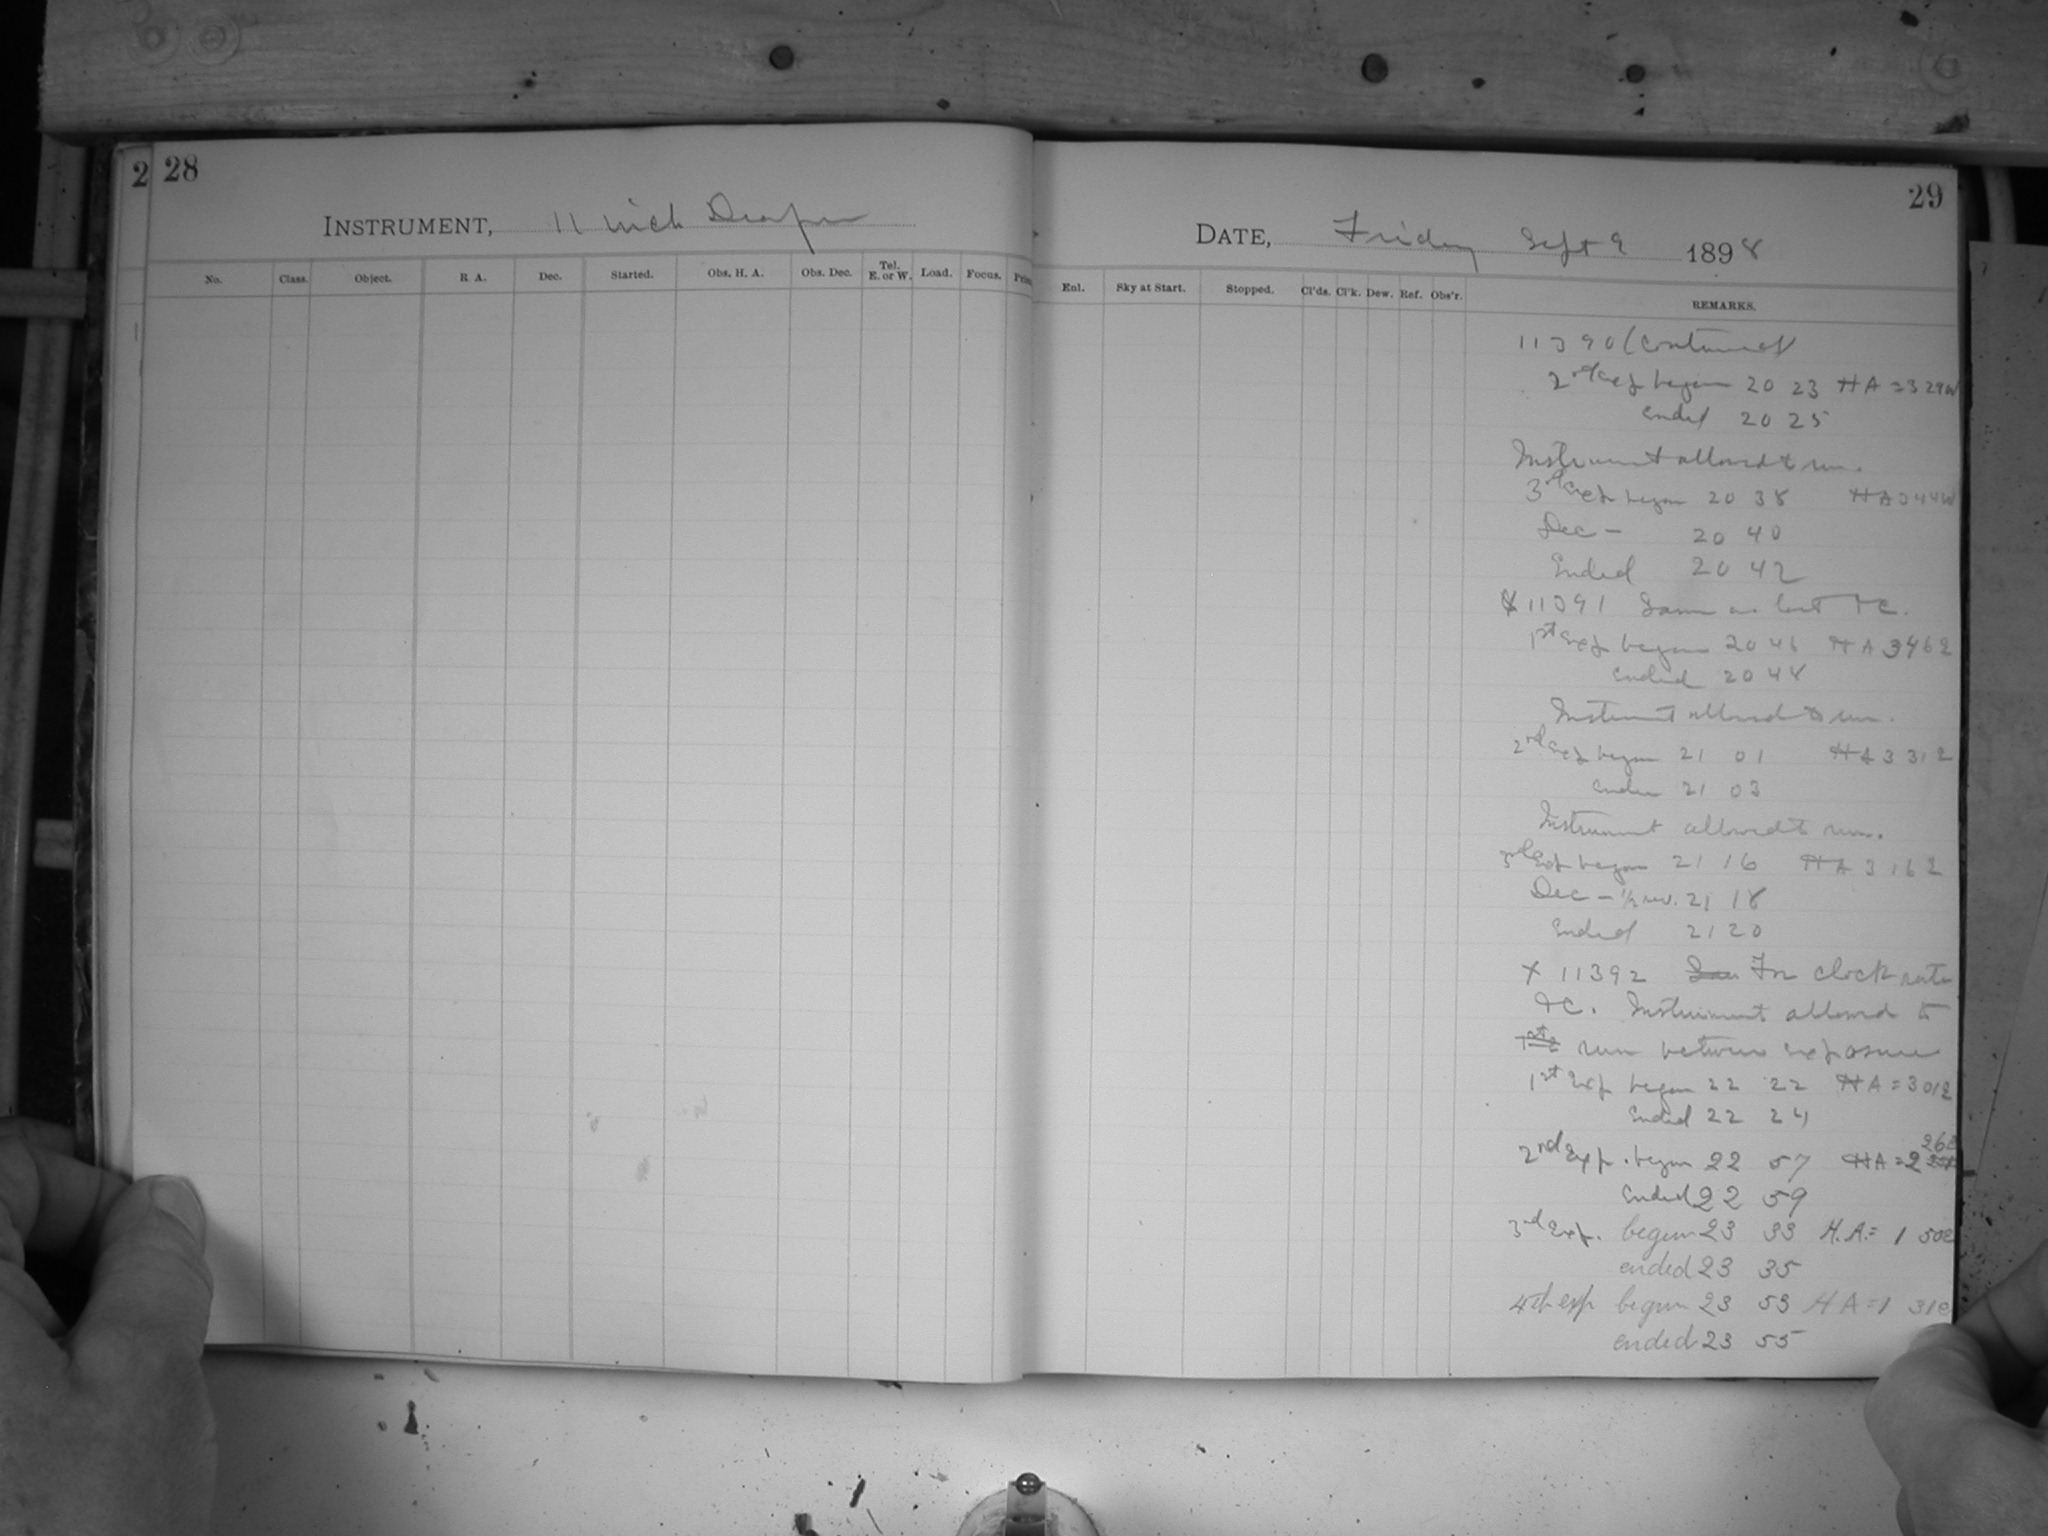 2 28
29
INSTRUMENT, 11 inch Draper
DATE, Friday Sept 9 1898
No. Class. Object. R. A. Dec. Started. Obs. H. A. Obs. Dec. Tel. E. or W. Load. Focus.
Enl. Sky at Start. Stopped. Cl'ds. Cl'k. Dew. Ref. Obs'r. REMARKS.
11390 (Continued)
2nd exp began 20 23 HA = 3 29W
Ended 20 25
Instrument allowed to run.
3rd exp began 20 38 HA 3 44W
Dec - 20 40
Ended 20 42
X 11391 Same as last + C.
1st exp began 20 46 HA 3 46E
ended 20 48
Instrument allowed to run.
2nd exp began 21 01 HA 3 31E
Ended 21 03
Instrument allowed to run.
3rd exp began 21 16 HA 3 16E
Dec - 1/2 rev. 21 18
Ended 21 20
X 11392 For clock rate
+ C. Instrument allowed to
run between exposures
1st exp began 22 22 HA = 3 01E
Ended 22 24
2nd exp. began 22 57 HA = 2 26E
Ended 22 59
3rd exp. began 23 33 H.A. = 1 50E
ended 23 35
4th exp began 23 53 HA = 1 31E
ended 23 55